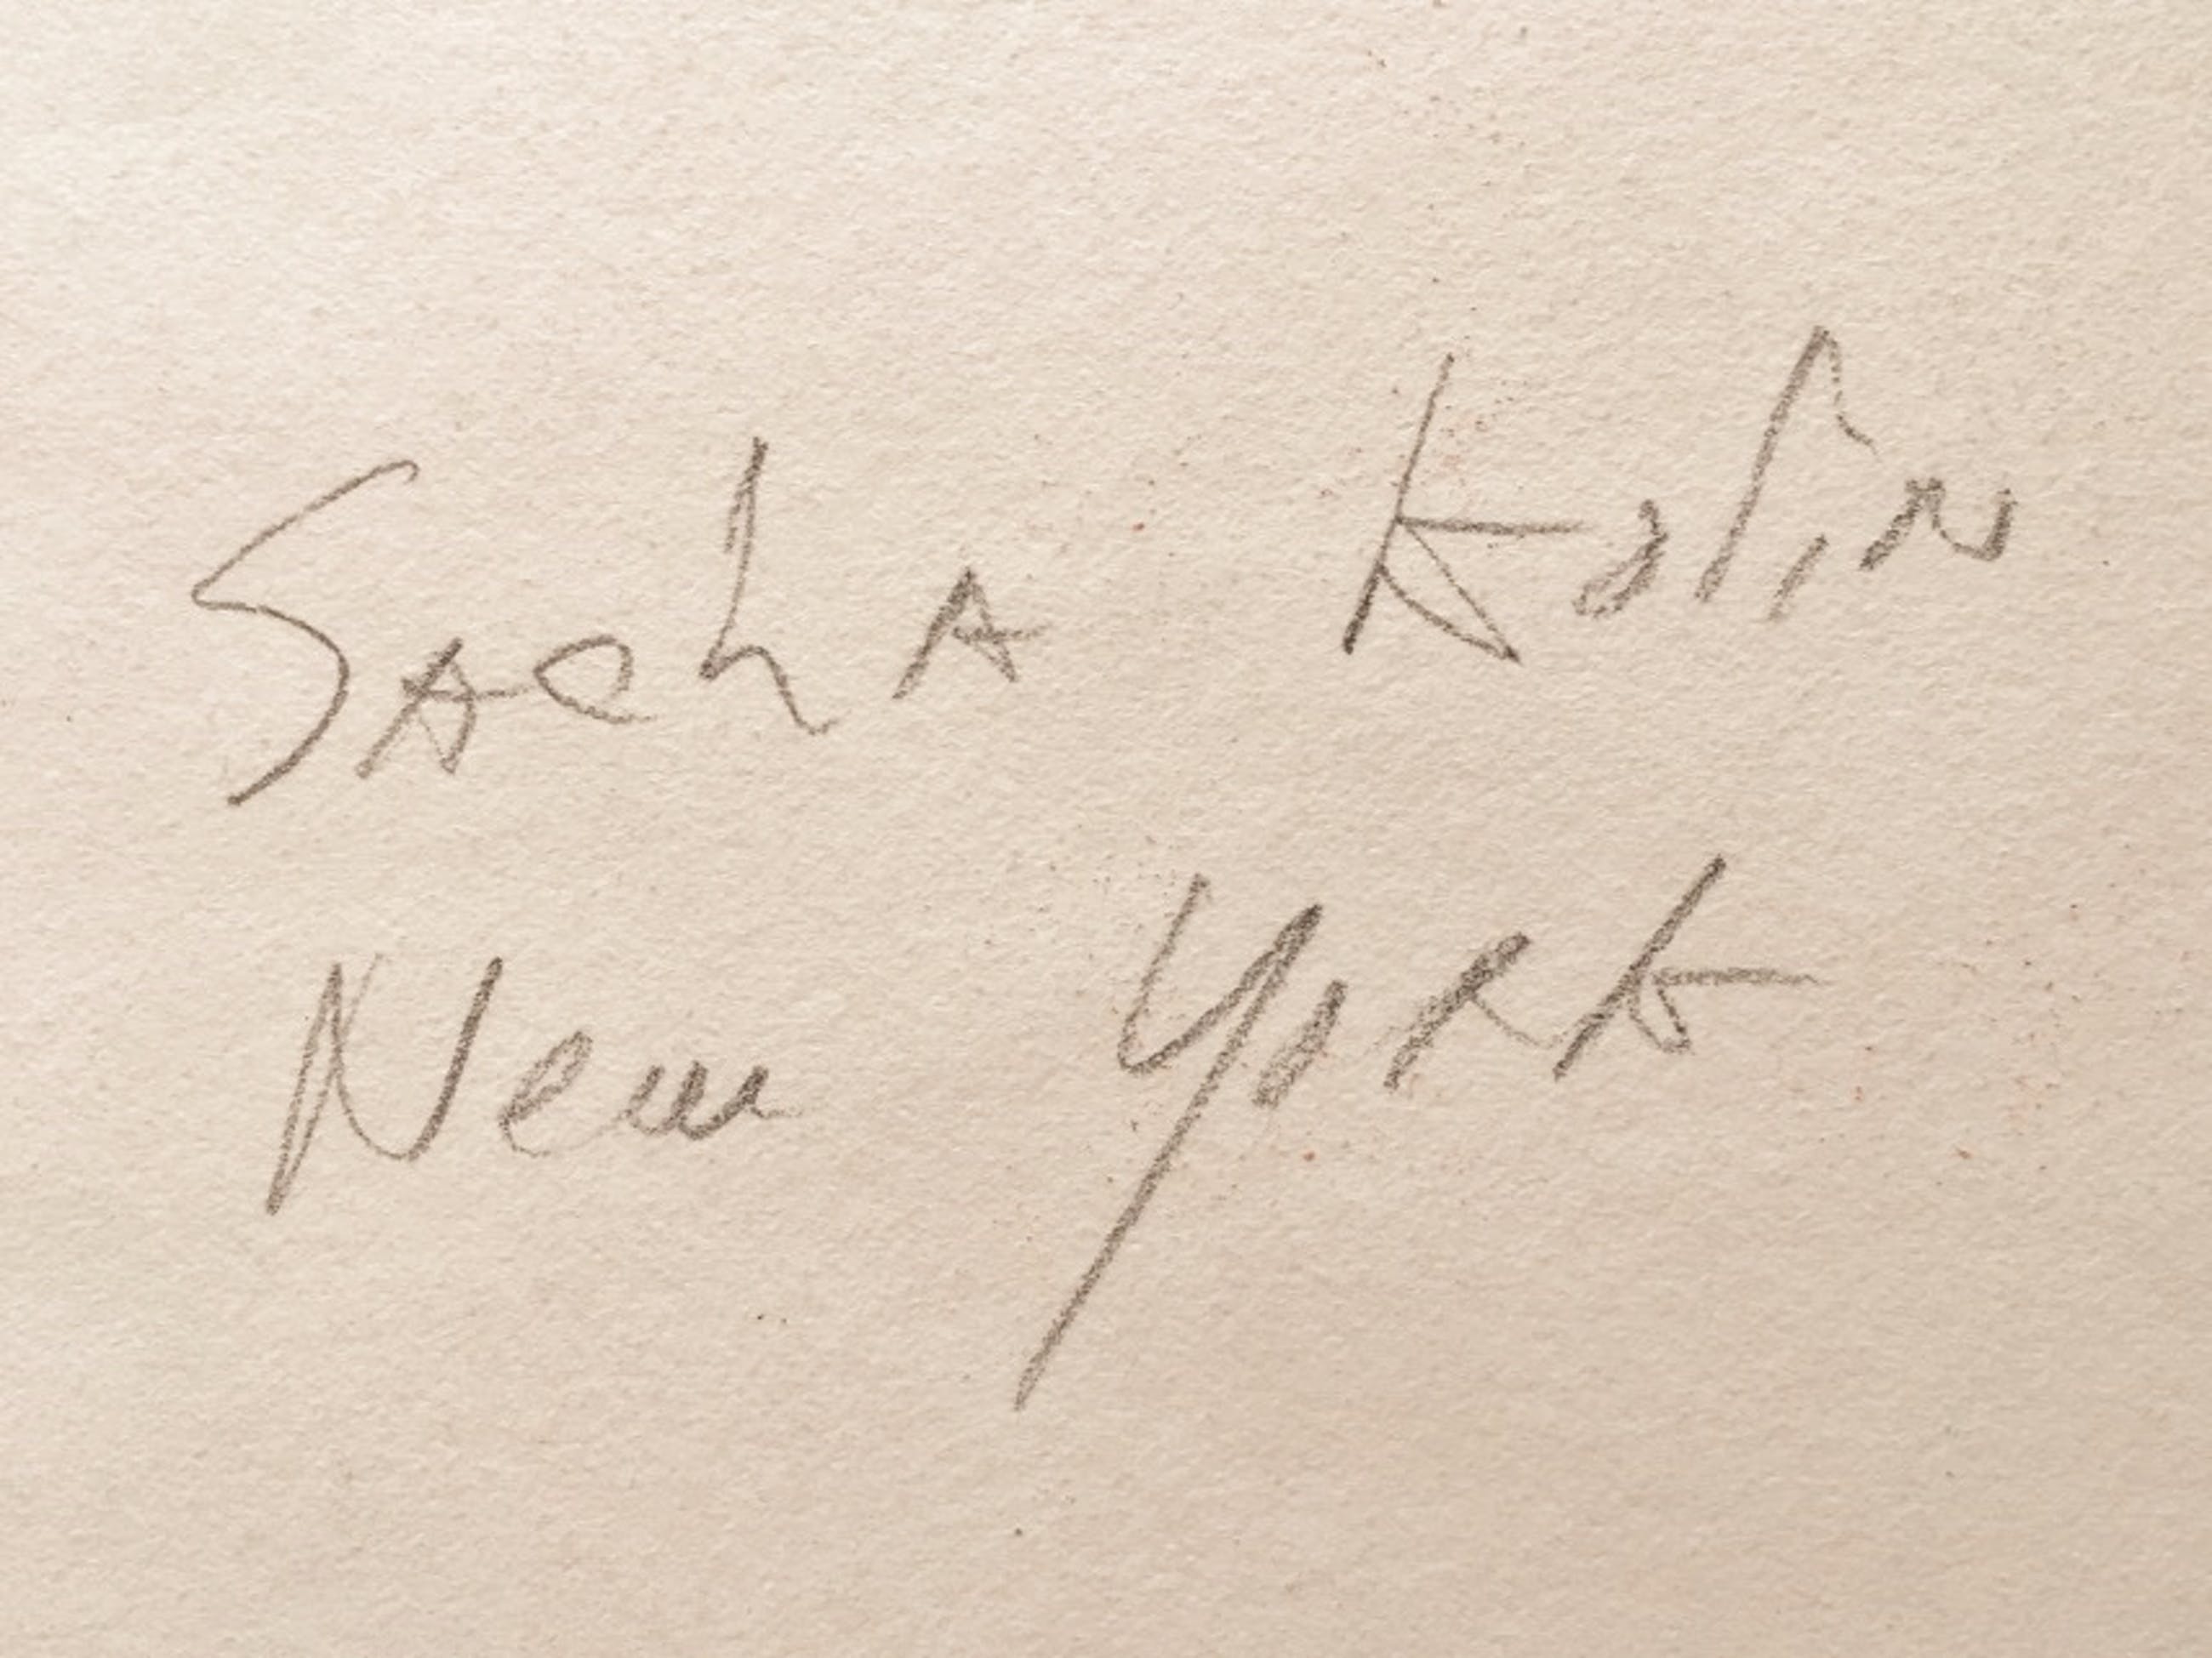 Sacha Kolin
New York